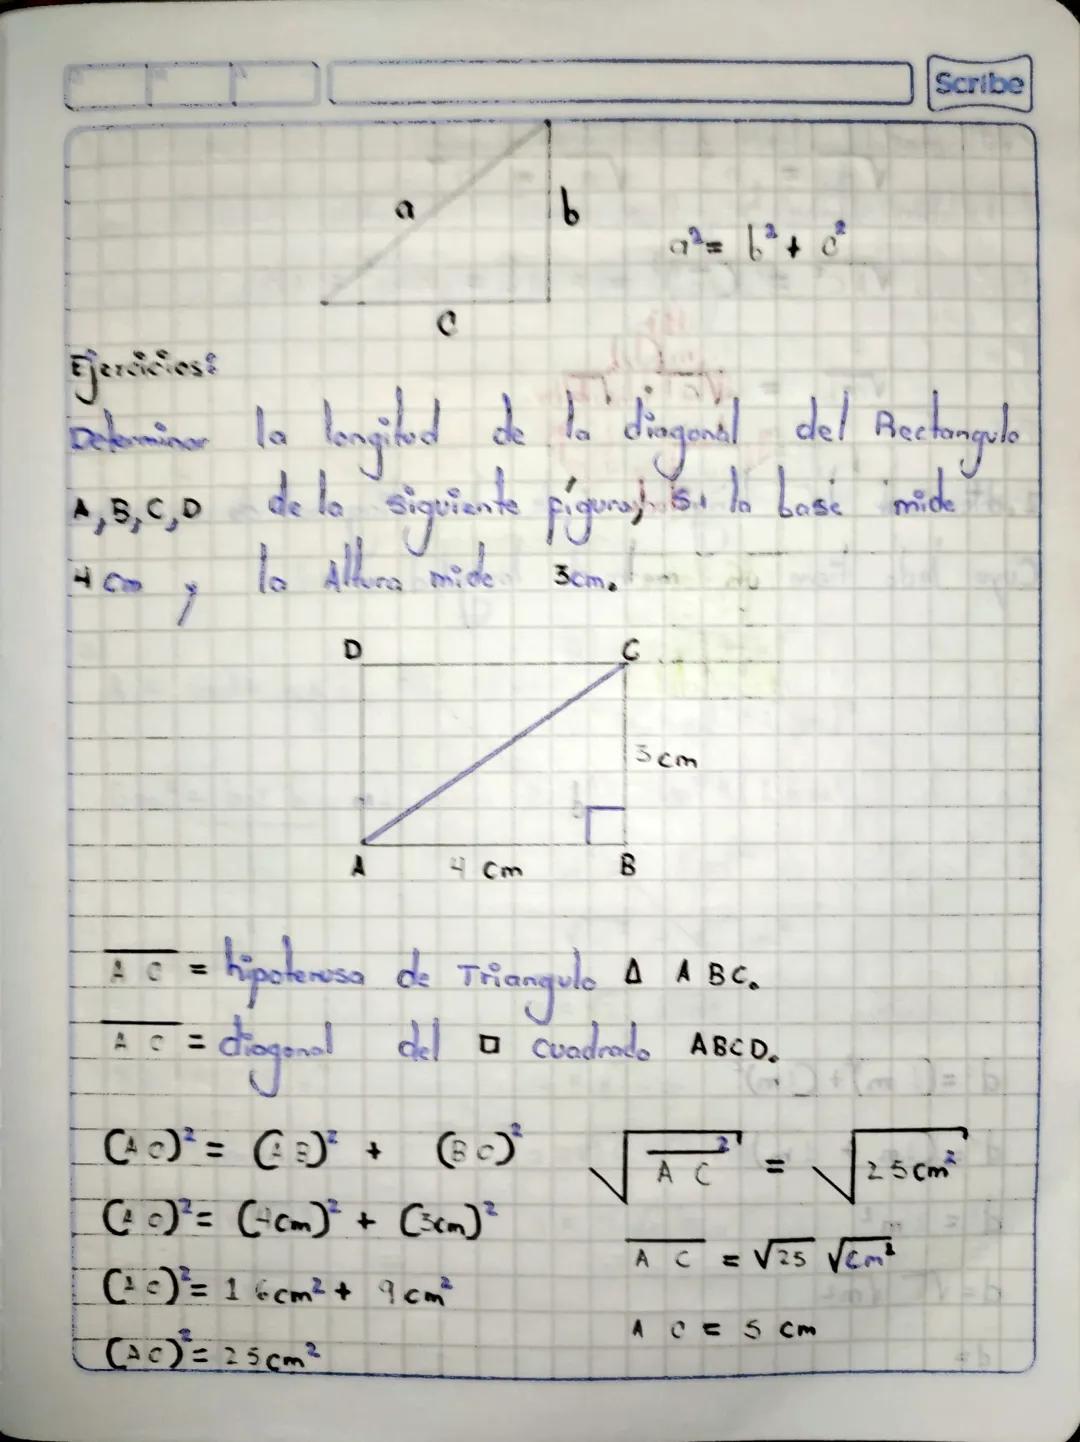 Scribe
a
b
a²= b²+ c²
c
Ejercicios:
Determinar la longitud de la diagonal del Rectangulo
A,B,C,D de la siguiente figura, si la base mide
4 cm y la Altura mide 3cm.
D C
3 cm
A 4 cm B
AC = hipotenusa de Triangulo Δ ABC.
AC = diagonal del □ cuadrado ABCD.
(AC)² = (AB)² + (BC)²
(AC)² = (4cm)² + (3cm)²
(AC)² = 16cm² + 9cm²
(AC)² = 25cm²
√AC² = √25cm²
AC = √25 √cm²
AC = 5 cm